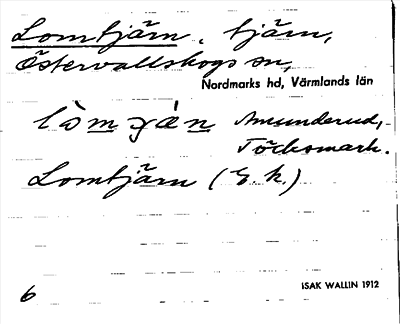 Lomtjärn. tjärn,
Östervallskogs sn,
Nordmarks hd, Värmlands län
Amunderud,
Töcksmark.
Lomtjärn (E.k.)
6 ISAK WALLIN 1912